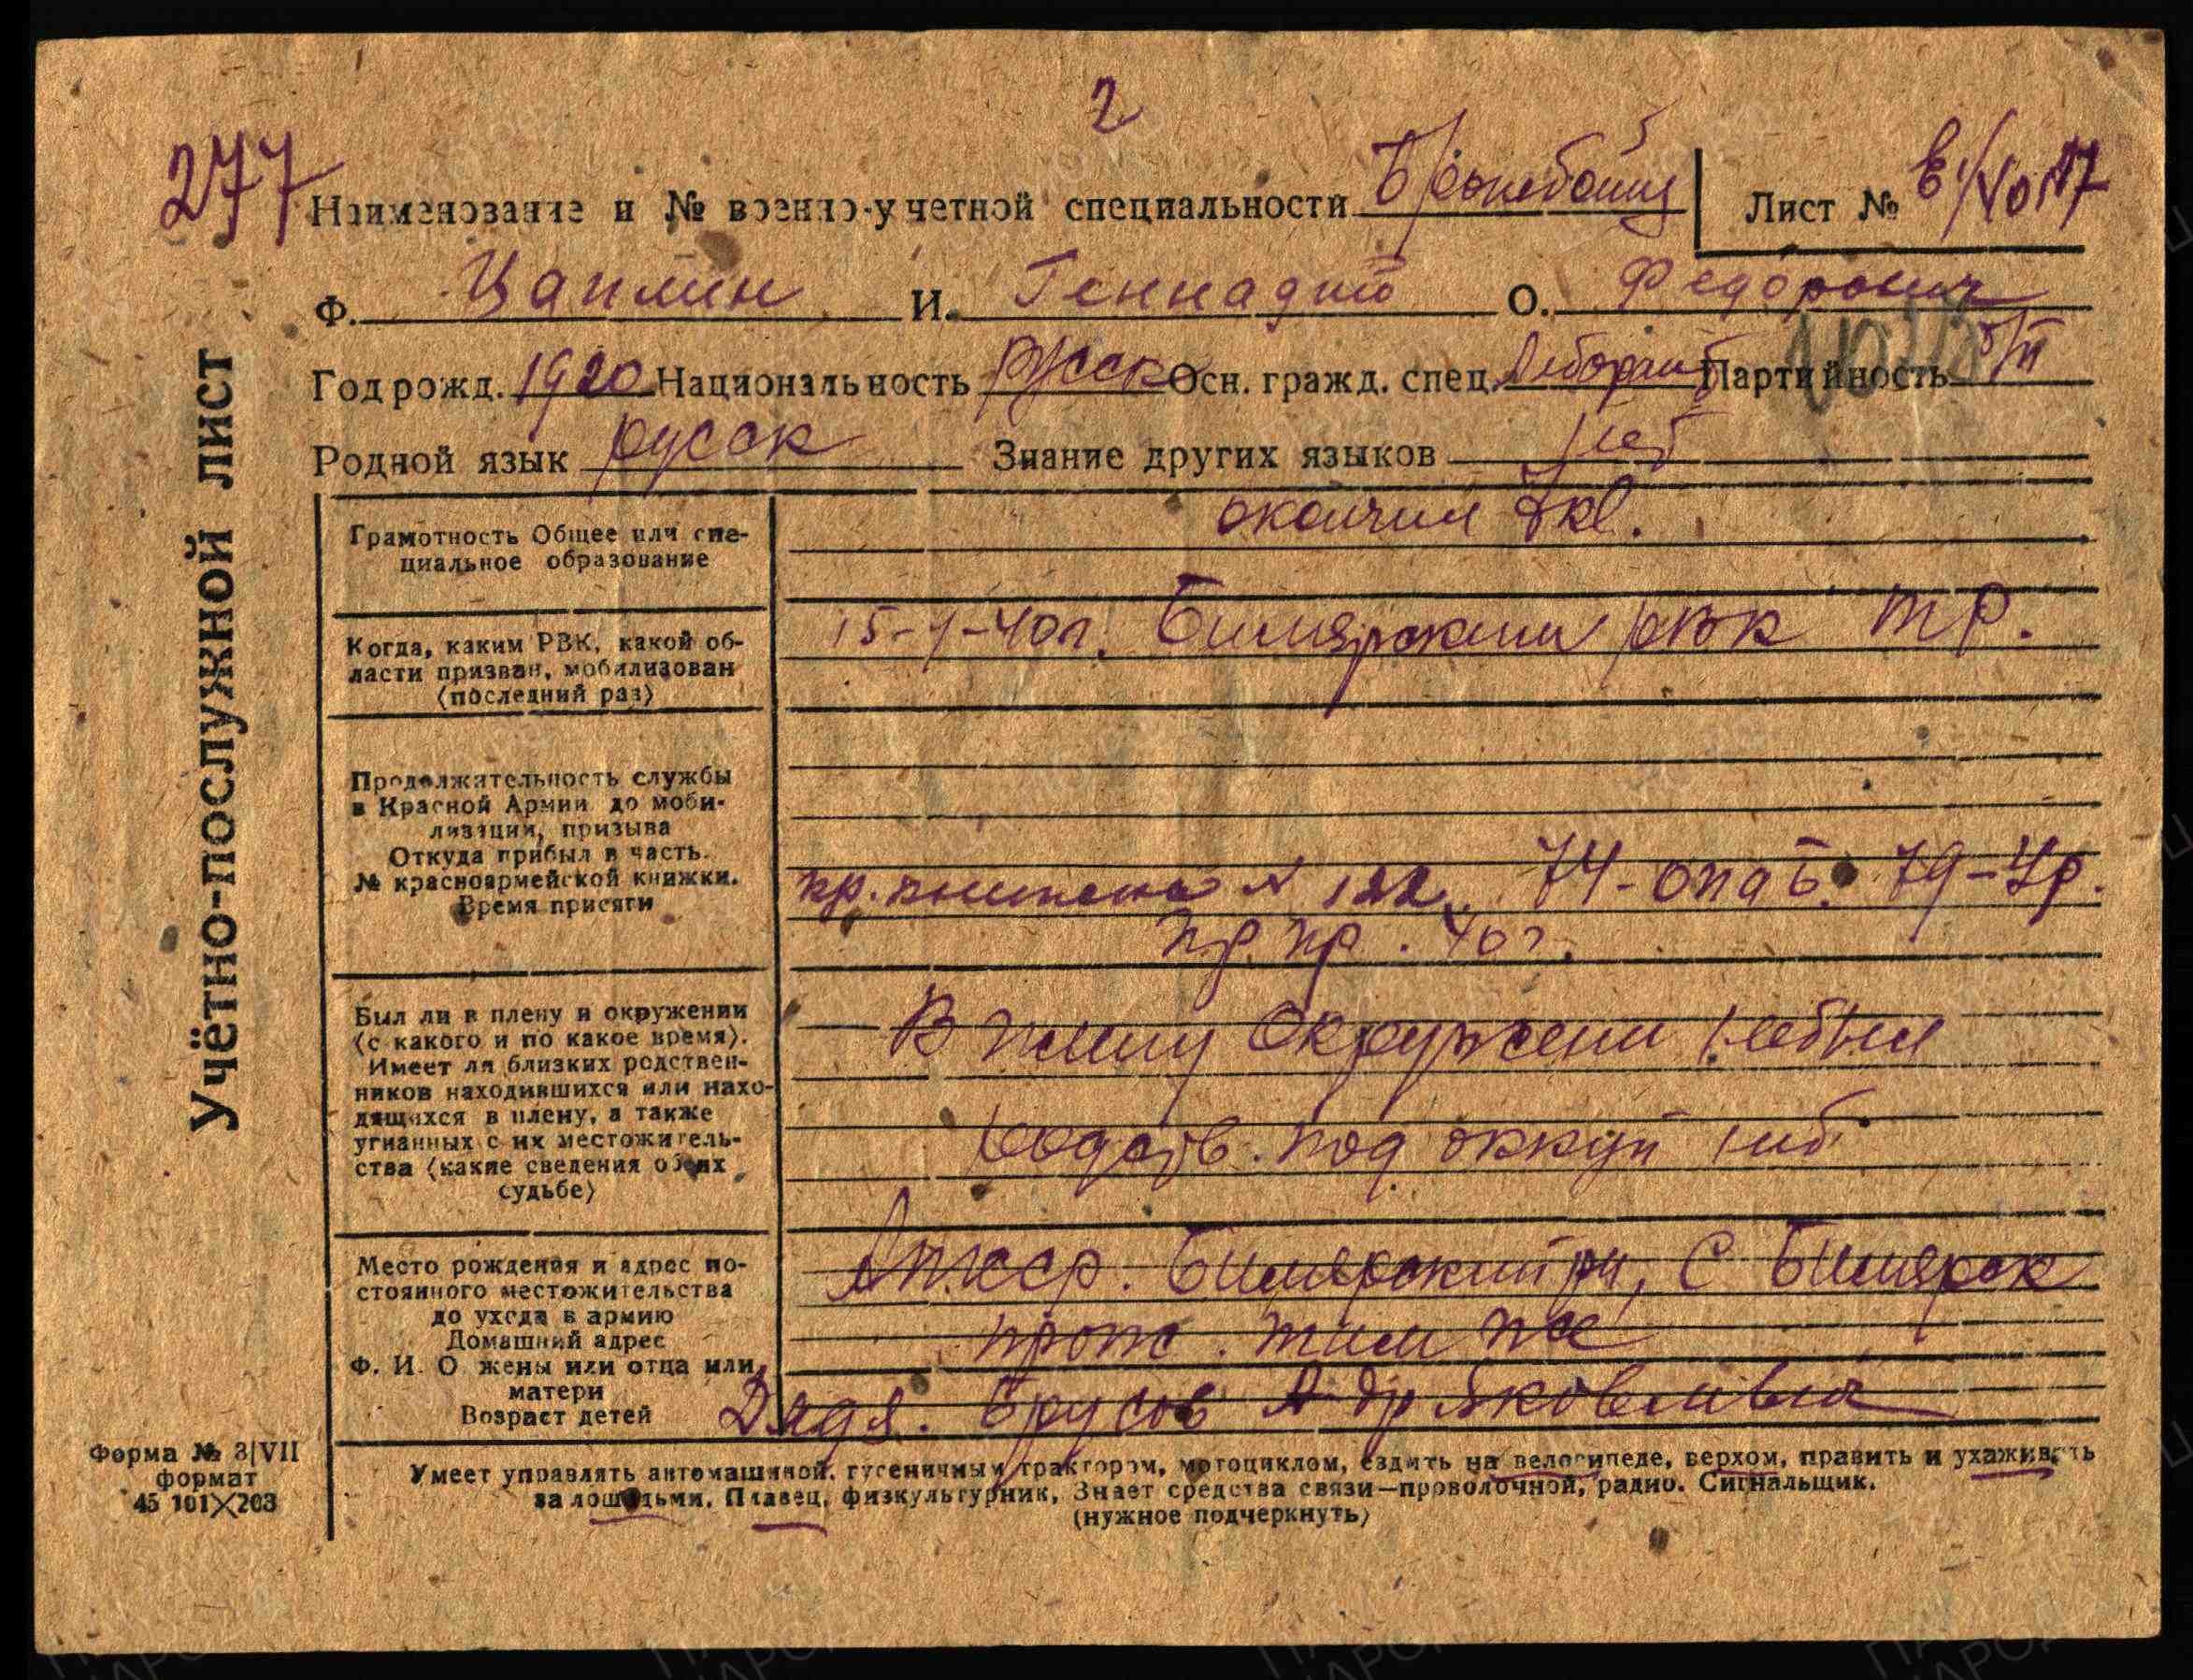 2
277
Наименование и № военно-учетной специальности Бронебойщ Лист №
Ф. Цаплин И. Геннадий О. Федорович
Год рожд. 1920 Национальность Русск Осн. гражд. спец. Партийность б/п
Родной язык русск Знание других языков нет
Учётно-послужной лист
Грамотность Общее или специальное образование
окончил 7 кл.
Когда, каким РВК, какой об-
ласти призван, мобилизован
(последний раз)
15-1-40г. Билярский рвк ТР.
Продолжительность службы
в Красной Армии до моби-
лизации, призыва
Откуда прибыл в часть.
№ красноармейской книжки.
Время присяги
кр. книжка № 122. 74-опаб. 79-Ур.
пр. пр. 40г.
Был ли в плену и окружении
(с какого и по какое время).
Имеет ли близких родствен-
ников находившихся или нахо-
дящихся в плену, а также
угнанных с их местожитель-
ства (какие сведения об их
судьбе)
В плену окружени небыл
родств. под оккуп нет
Место рождения и адрес по-
стоянного местожительства
до ухода в армию
Домашний адрес
Ф. И. О. жены или отца или
матери
Возраст детей
Билярский рн, с Билярск
прож. там же
Дядя. Яковлевич
Форма № 3/VII
формат
45 101×203
Умеет управлять автомашиной, гусеничным трактором, мотоциклом, ездить на велосипеде, верхом, править и ухаживать
за лошадьми. Пловец, физкультурник, Знает средства связи—проволочной, радио. Сигнальщик.
(нужное подчеркнуть)